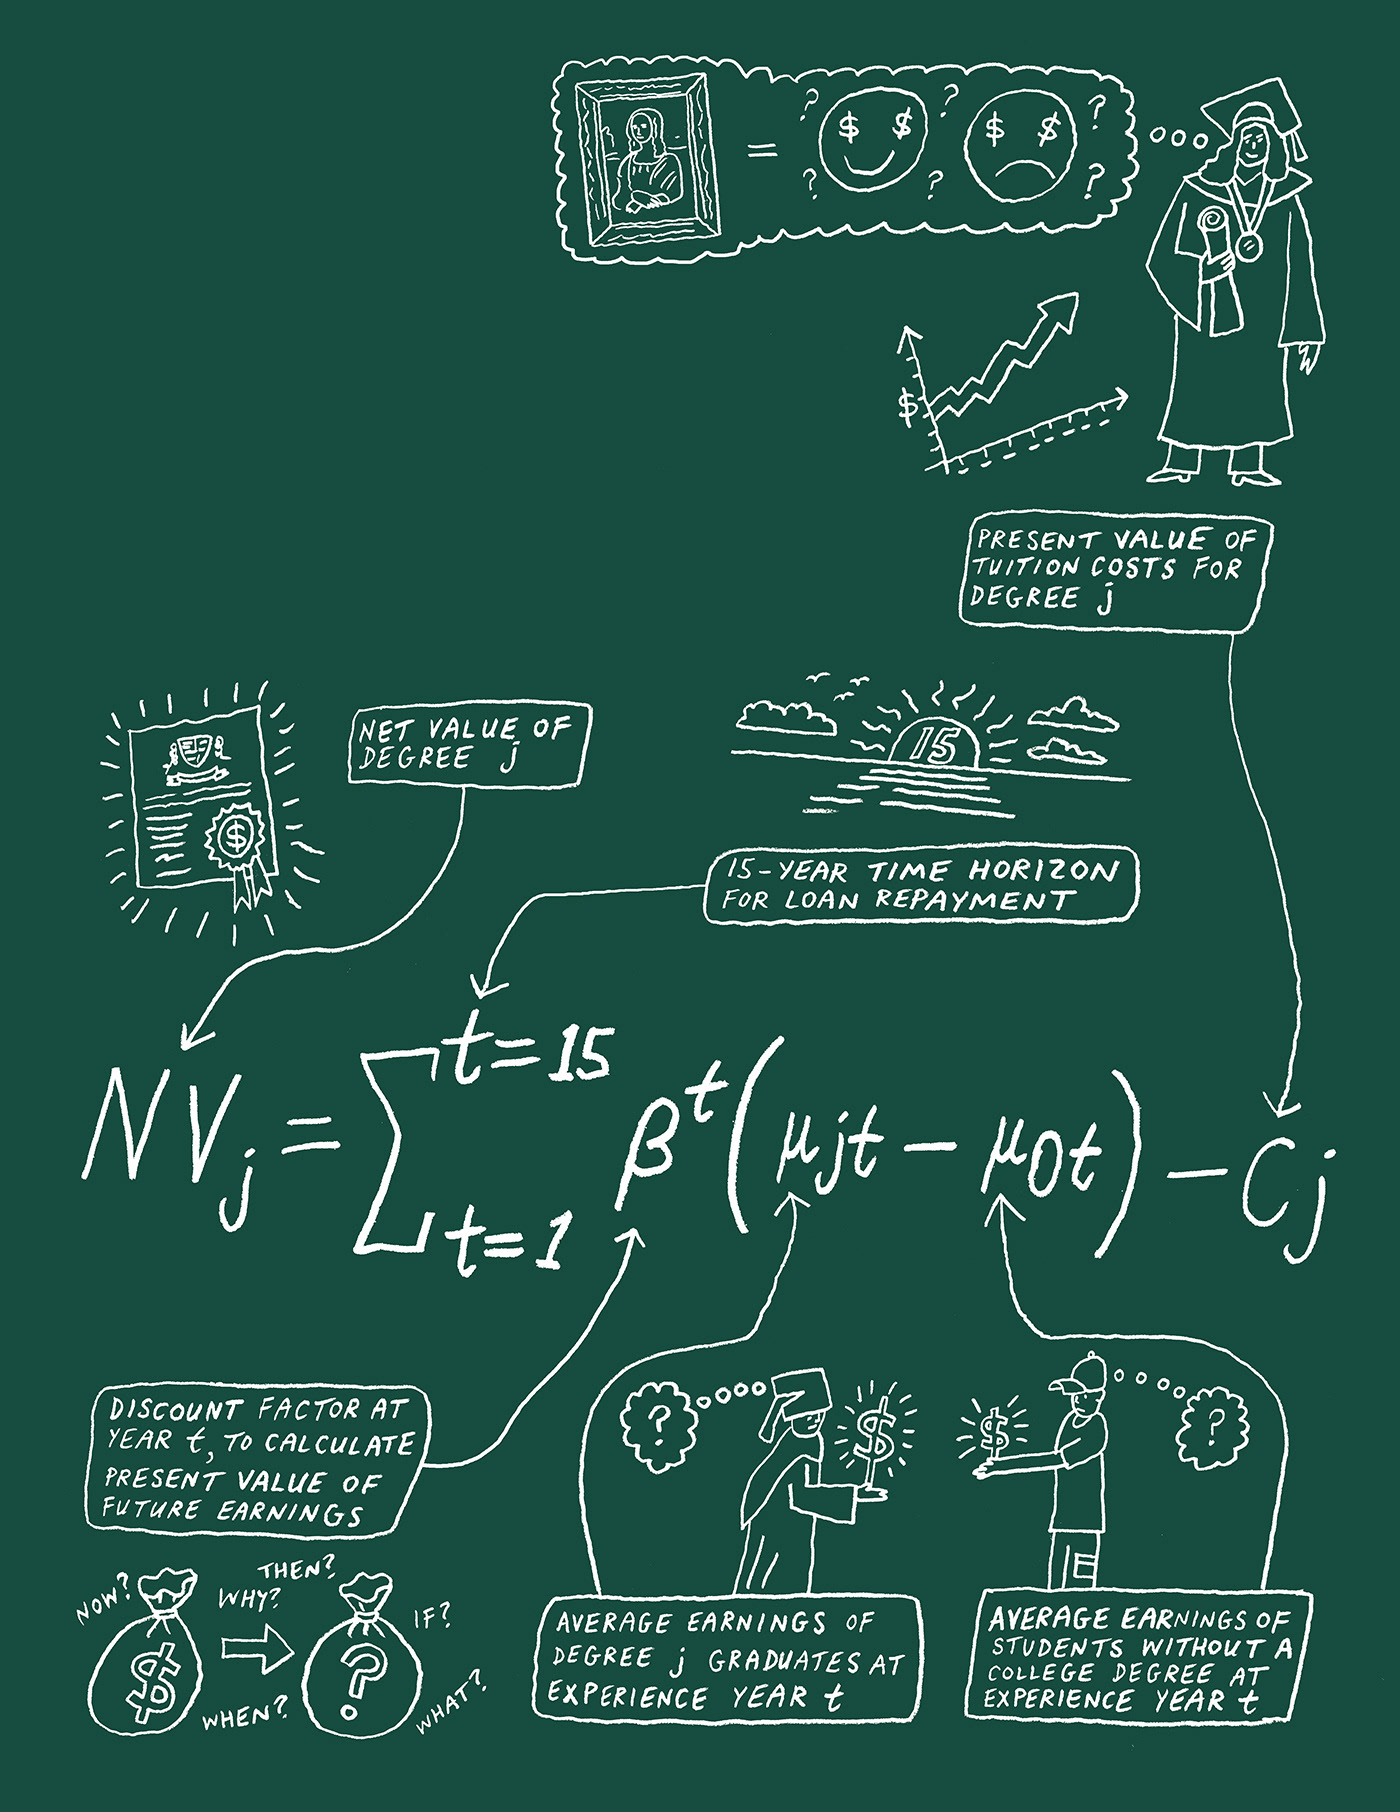 = $ $ $ $
? ? ? ? ? ?
$
PRESENT VALUE OF
TUITION COSTS FOR
DEGREE j
NET VALUE OF
DEGREE j
$
15
15-YEAR TIME HORIZON
FOR LOAN REPAYMENT
t=15
NVj = Σ β^t (μjt − μ0t) − Cj
t=1
DISCOUNT FACTOR AT
YEAR t, TO CALCULATE
PRESENT VALUE OF
FUTURE EARNINGS
NOW?
WHY?
THEN?
IF?
$
?
WHEN?
WHAT?
?
$
AVERAGE EARNINGS OF
DEGREE j GRADUATES AT
EXPERIENCE YEAR t
$
?
AVERAGE EARNINGS OF
STUDENTS WITHOUT A
COLLEGE DEGREE AT
EXPERIENCE YEAR t